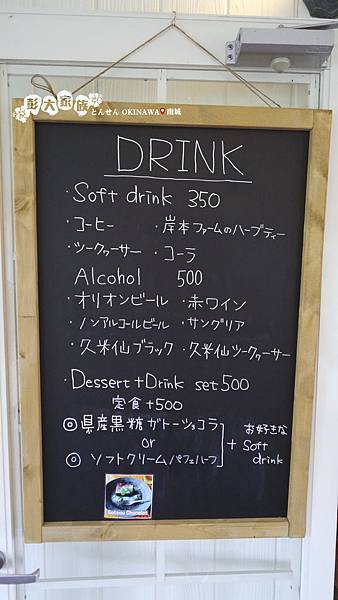 彭大家族
とんせん OKINAWA 南城
DRINK
・Soft drink 350
・コーヒー ・岸本ファームのハーブティー
・ツークヮーサー ・コーラ
Alcohol 500
・オリオンビール ・赤ワイン
・ノンアルコールビール ・サングリア
・久米仙ブラック ・久米仙ツークヮーサー
・Dessert+Drink set500
定食+500
◎県産黒糖ガトーショコラ
or
◎ソフトクリームパフェハーフ
+ お好きな
Soft
drink
Gateau Chocolat